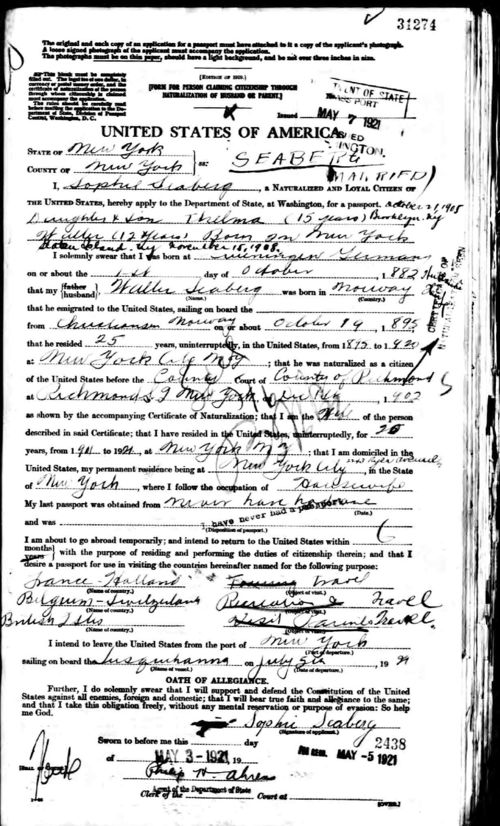 31274
The original and each copy of an application for a passport must have attached to it a copy of the applicant's photograph.
A loose signed photograph of the applicant must accompany the application.
The photographs must be on thin paper, should have a light background, and be not over three inches in size.
[EDITION OF 1919.]
[FORM FOR PERSON CLAIMING CITIZENSHIP THROUGH
NATURALIZATION OF HUSBAND OR PARENT.]
Issued
MAY 7 1921
UNITED STATES OF AMERICA
WASHINGTON.
STATE OF New York
COUNTY OF New York ss:
SEABERG
(MARRIED)
I, Sophie Seaberg, a NATURALIZED AND LOYAL CITIZEN OF
THE UNITED STATES, hereby apply to the Department of State, at Washington, for a passport. October 21, 1905
Daughter & Son Thelma (15 years) Brooklyn Ny
Walter (12 Years) Born in New York
Staten Island. Ny November 15, 1908.
I solemnly swear that I was born at Germany
on or about the 1st day of October, 1882
that my {father husband}, Walter Seaberg was born in Norway
(Name.) (Country.)
that he emigrated to the United States, sailing on board the
from Christiansan Norway on or about October 19, 1895
that he resided 25 years, uninterruptedly, in the United States, from 1895 to 1920
at New York City Ny; that he was naturalized as a citizen
of the United States before the County Court of County of Richmond
at Richmond S I New York, on 1902
as shown by the accompanying Certificate of Naturalization; that I am the Wife of the person
described in said Certificate; that I have resided in the United States, uninterruptedly, for 20
years, from 1901 to 1921, at New York N.Y; that I am domiciled in the
United States, my permanent residence being at New York City, in the State
of New York, where I follow the occupation of Housewife
My last passport was obtained from never have had one
(Date.)
and was have never had a passport
(Disposition of passport.)
I am about to go abroad temporarily; and intend to return to the United States within 6
{months years} with the purpose of residing and performing the duties of citizenship therein; and that I
desire a passport for use in visiting the countries hereinafter named for the following purpose:
France Holland travel
(Name of country.) (Object of visit.)
Belgium Switzerland Recreation & Travel
(Name of country.) (Object of visit.)
British Isles Visit Parents Travel
(Name of country.) (Object of visit.)
I intend to leave the United States from the port of New York
(Port of departure.)
sailing on board the Susquehanna on July 5th, 1921
(Name of vessel.) (Date of departure.)
OATH OF ALLEGIANCE.
Further, I do solemnly swear that I will support and defend the Constitution of the United
States against all enemies, foreign and domestic; that I will bear true faith and allegiance to the same;
and that I take this obligation freely, without any mental reservation or purpose of evasion: So help
me God.
Sophie Seaberg
(Signature of applicant.)
Sworn to before me this day
2438
of MAY 3-1921, 19
MAY -5 1921
Philip N. Ahrens
Agent of the Department of State
Clerk of the Court at
[OVER.]